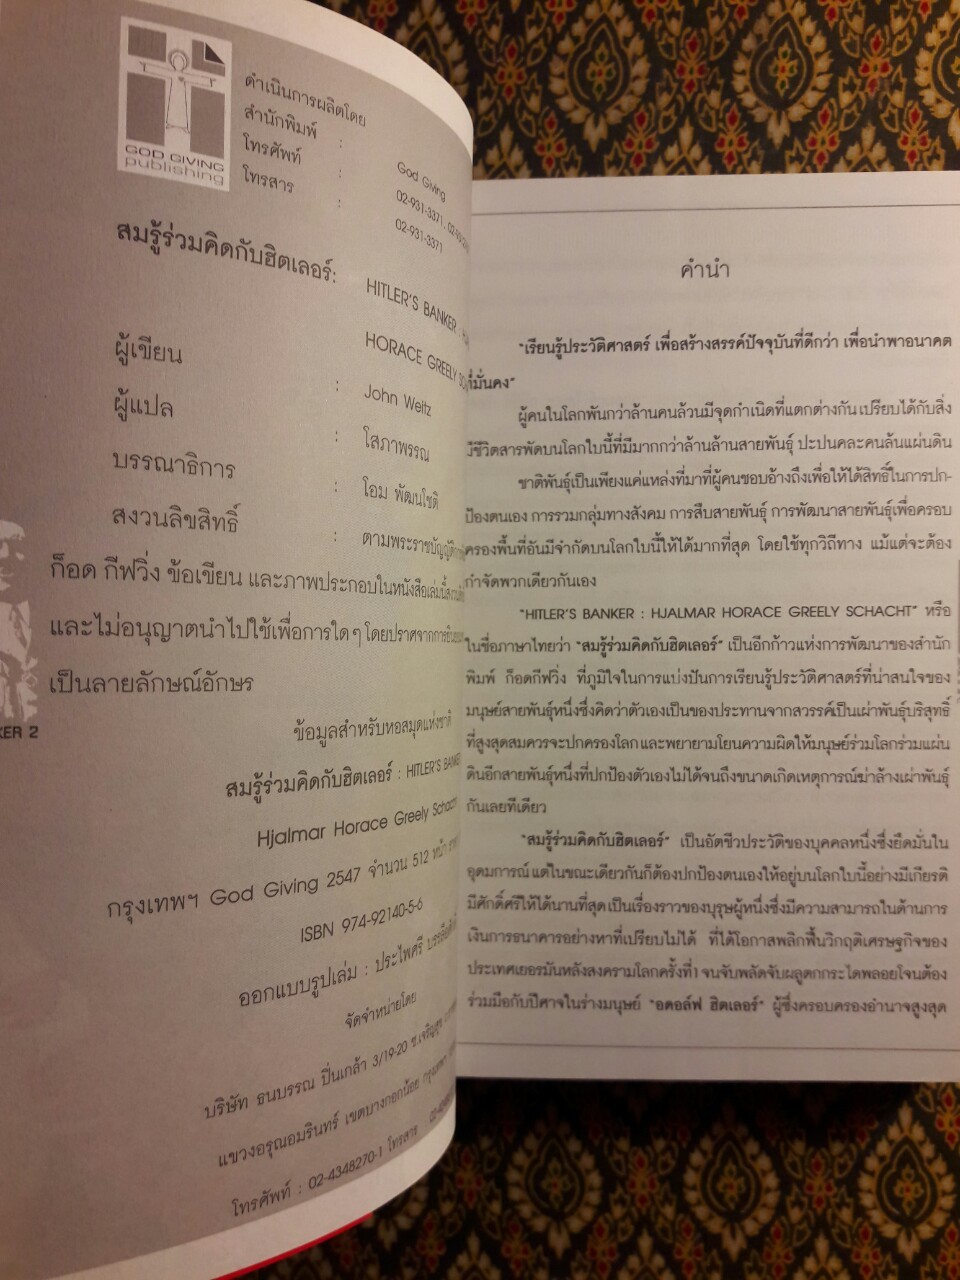 GOD GIVING
publishing
ดำเนินการผลิตโดย
สำนักพิมพ์ : God Giving
โทรศัพท์ : 02-931-3371,
โทรสาร : 02-931-3371
สมรู้ร่วมคิดกับฮิตเลอร์: HITLER'S BANKER :
HORACE GREELY
ผู้เขียน : John Weitz
ผู้แปล : โสภาพรรณ
บรรณาธิการ : โอม พัฒนโชติ
สงวนลิขสิทธิ์ : ตามพระราชบัญญัติ
ก็อด กีฟวิ่ง ข้อเขียน และภาพประกอบในหนังสือเล่มนี้
และไม่อนุญาตนำไปใช้เพื่อการใดๆ โดยปราศจากการ
เป็นลายลักษณ์อักษร
KER 2
ข้อมูลสำหรับหอสมุดแห่งชาติ
สมรู้ร่วมคิดกับฮิตเลอร์ : HITLER'S BANKE
Hjalmar Horace Greely Schacht
กรุงเทพฯ God Giving 2547 จำนวน 512 หน้า
ISBN 974-92140-5-6
ออกแบบรูปเล่ม : ประไพศรี
จัดจำหน่ายโดย
บริษัท ธนบรรณ ปิ่นเกล้า 3/19-20 ซ.เจริญสุข
แขวงอรุณอมรินทร์ เขตบางกอกน้อย กรุงเทพฯ
โทรศัพท์ : 02-4348270-1 โทรสาร :
คำนำ
"เรียนรู้ประวัติศาสตร์ เพื่อสร้างสรรค์ปัจจุบันที่ดีกว่า เพื่อนำพาอนาคต
ที่มั่นคง"
ผู้คนในโลกพันกว่าล้านคนล้วนมีจุดกำเนิดที่แตกต่างกัน เปรียบได้กับสิ่ง
มีชีวิตสารพัดบนโลกใบนี้ที่มีมากกว่าล้านล้านสายพันธุ์ ปะปนคละคนล้นแผ่นดิน
ชาติพันธุ์เป็นเพียงแค่แหล่งที่มาที่ผู้คนชอบอ้างถึงเพื่อให้ได้สิทธิ์ในการปก-
ป้องตนเอง การรวมกลุ่มทางสังคม การสืบสายพันธุ์ การพัฒนาสายพันธุ์เพื่อครอบ
ครองพื้นที่อันมีจำกัดบนโลกใบนี้ให้ได้มากที่สุด โดยใช้ทุกวิถีทาง แม้แต่จะต้อง
กำจัดพวกเดียวกันเอง
"HITLER'S BANKER : HJALMAR HORACE GREELY SCHACHT" หรือ
ในชื่อภาษาไทยว่า "สมรู้ร่วมคิดกับฮิตเลอร์" เป็นอีกก้าวแห่งการพัฒนาของสำนัก
พิมพ์ ก็อดกีฟวิ่ง ที่ภูมิใจในการแบ่งปันการเรียนรู้ประวัติศาสตร์ที่น่าสนใจของ
มนุษย์สายพันธุ์หนึ่งซึ่งคิดว่าตัวเองเป็นของประทานจากสวรรค์เป็นเผ่าพันธุ์บริสุทธิ์
ที่สูงสุดสมควรจะปกครองโลก และพยายามโยนความผิดให้มนุษย์ร่วมโลกร่วมแผ่น
ดินอีกสายพันธุ์หนึ่งที่ปกป้องตัวเองไม่ได้จนถึงขนาดเกิดเหตุการณ์ฆ่าล้างเผ่าพันธุ์
กันเลยทีเดียว
"สมรู้ร่วมคิดกับฮิตเลอร์" เป็นอัตชีวประวัติของบุคคลหนึ่งซึ่งยึดมั่นใน
อุดมการณ์ แต่ในขณะเดียวกันก็ต้องปกป้องตนเองให้อยู่บนโลกใบนี้อย่างมีเกียรติ
มีศักดิ์ศรีให้ได้นานที่สุด เป็นเรื่องราวของบุรุษผู้หนึ่งซึ่งมีความสามารถในด้านการ
เงินการธนาคารอย่างหาที่เปรียบไม่ได้ ที่ได้โอกาสพลิกฟื้นวิกฤติเศรษฐกิจของ
ประเทศเยอรมันหลังสงครามโลกครั้งที่1 จนจับพลัดจับผลูตกกระไดพลอยโจนต้อง
ร่วมมือกับปีศาจในร่างมนุษย์ "อดอล์ฟ ฮิตเลอร์" ผู้ซึ่งครอบครองอำนาจสูงสุด